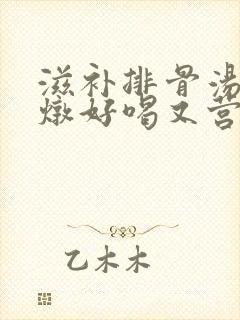 滋补排骨汤
燉好喝又营
乙木木